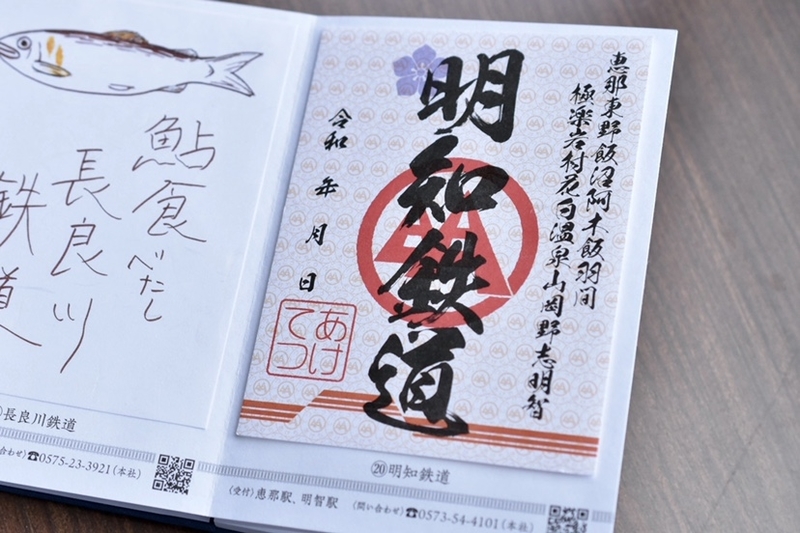 鮎食べたし
長良川
鉄道
長良川鉄道
合わせ〉☎0575-23-3921(本社)
恵那東野飯沼阿木飯羽間
極楽岩村花白温泉山岡野志明智
明知鉄道
令和 年 月 日
あけてつ
⑳明知鉄道
〈受付〉恵那駅、明智駅 〈問い合わせ〉☎0573-54-4101(本社)